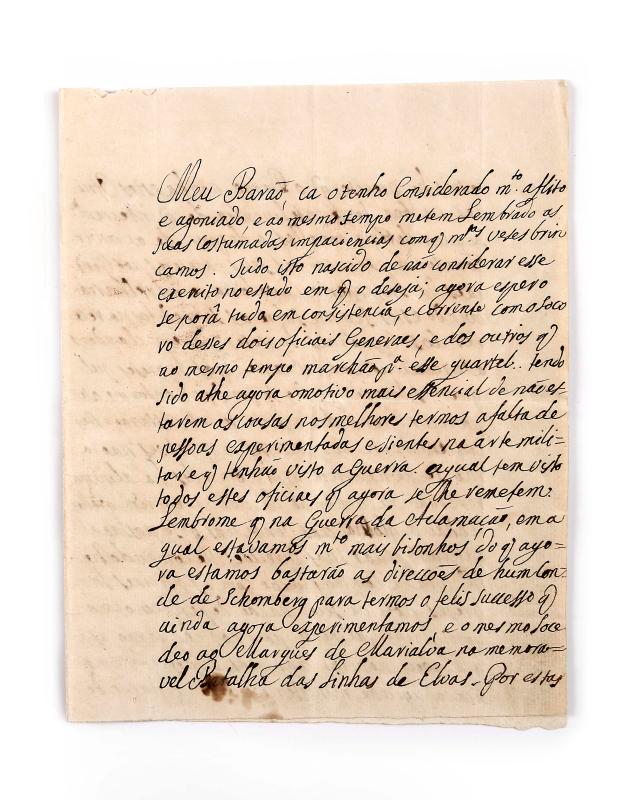 Meu Baraõ, ca o tenho Considerado m.to aflito
e agoniado, e ao mesmo tempo metem Lembrado as
suas costumadas impaciencias com q̃ m.tas veses brin
camos. Tudo isto nascido de não considerar esse
exercito no estado em q̃ o deseja; agora espero
se porâ tuda em consistencia, e corrente com o soco
rro desses dois oficiais Generaes, e dos outros q̃
ao mesmo tempo marchão p.a esse quartel.. tendo
sido athe agora o motivo mais essencial de não es-
tarem as cousas nos melhores termos a falta de
pessoas experimentadas e sientes na arte mili=
tar e q̃ tenhão visto a Guerra. aqual tem visto
todos estes oficiaes q̃ agora se lhe remetem.
Lembrome q̃ na Guerra da Aclamacaõ, em a
qual estavamos m.to mais bisonhos do q̃ ago=
ra estamos bastarão as direccões de hum Con-
de de Schomberg para termos o felis sucesso q̃
ainda agora experimentamos, e o mesmo soce
deo ao Marques de Marialva na memora=
vel Batalha das Linhas de Elvas. Por estas